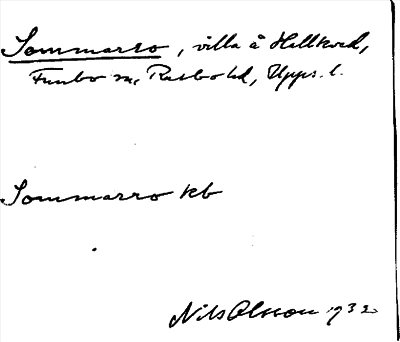 Sommarro, villa å Hällkved,
Funbo sn, Rasbo hd, Upps. l.
Sommarro kb
Nils Olsson 1932